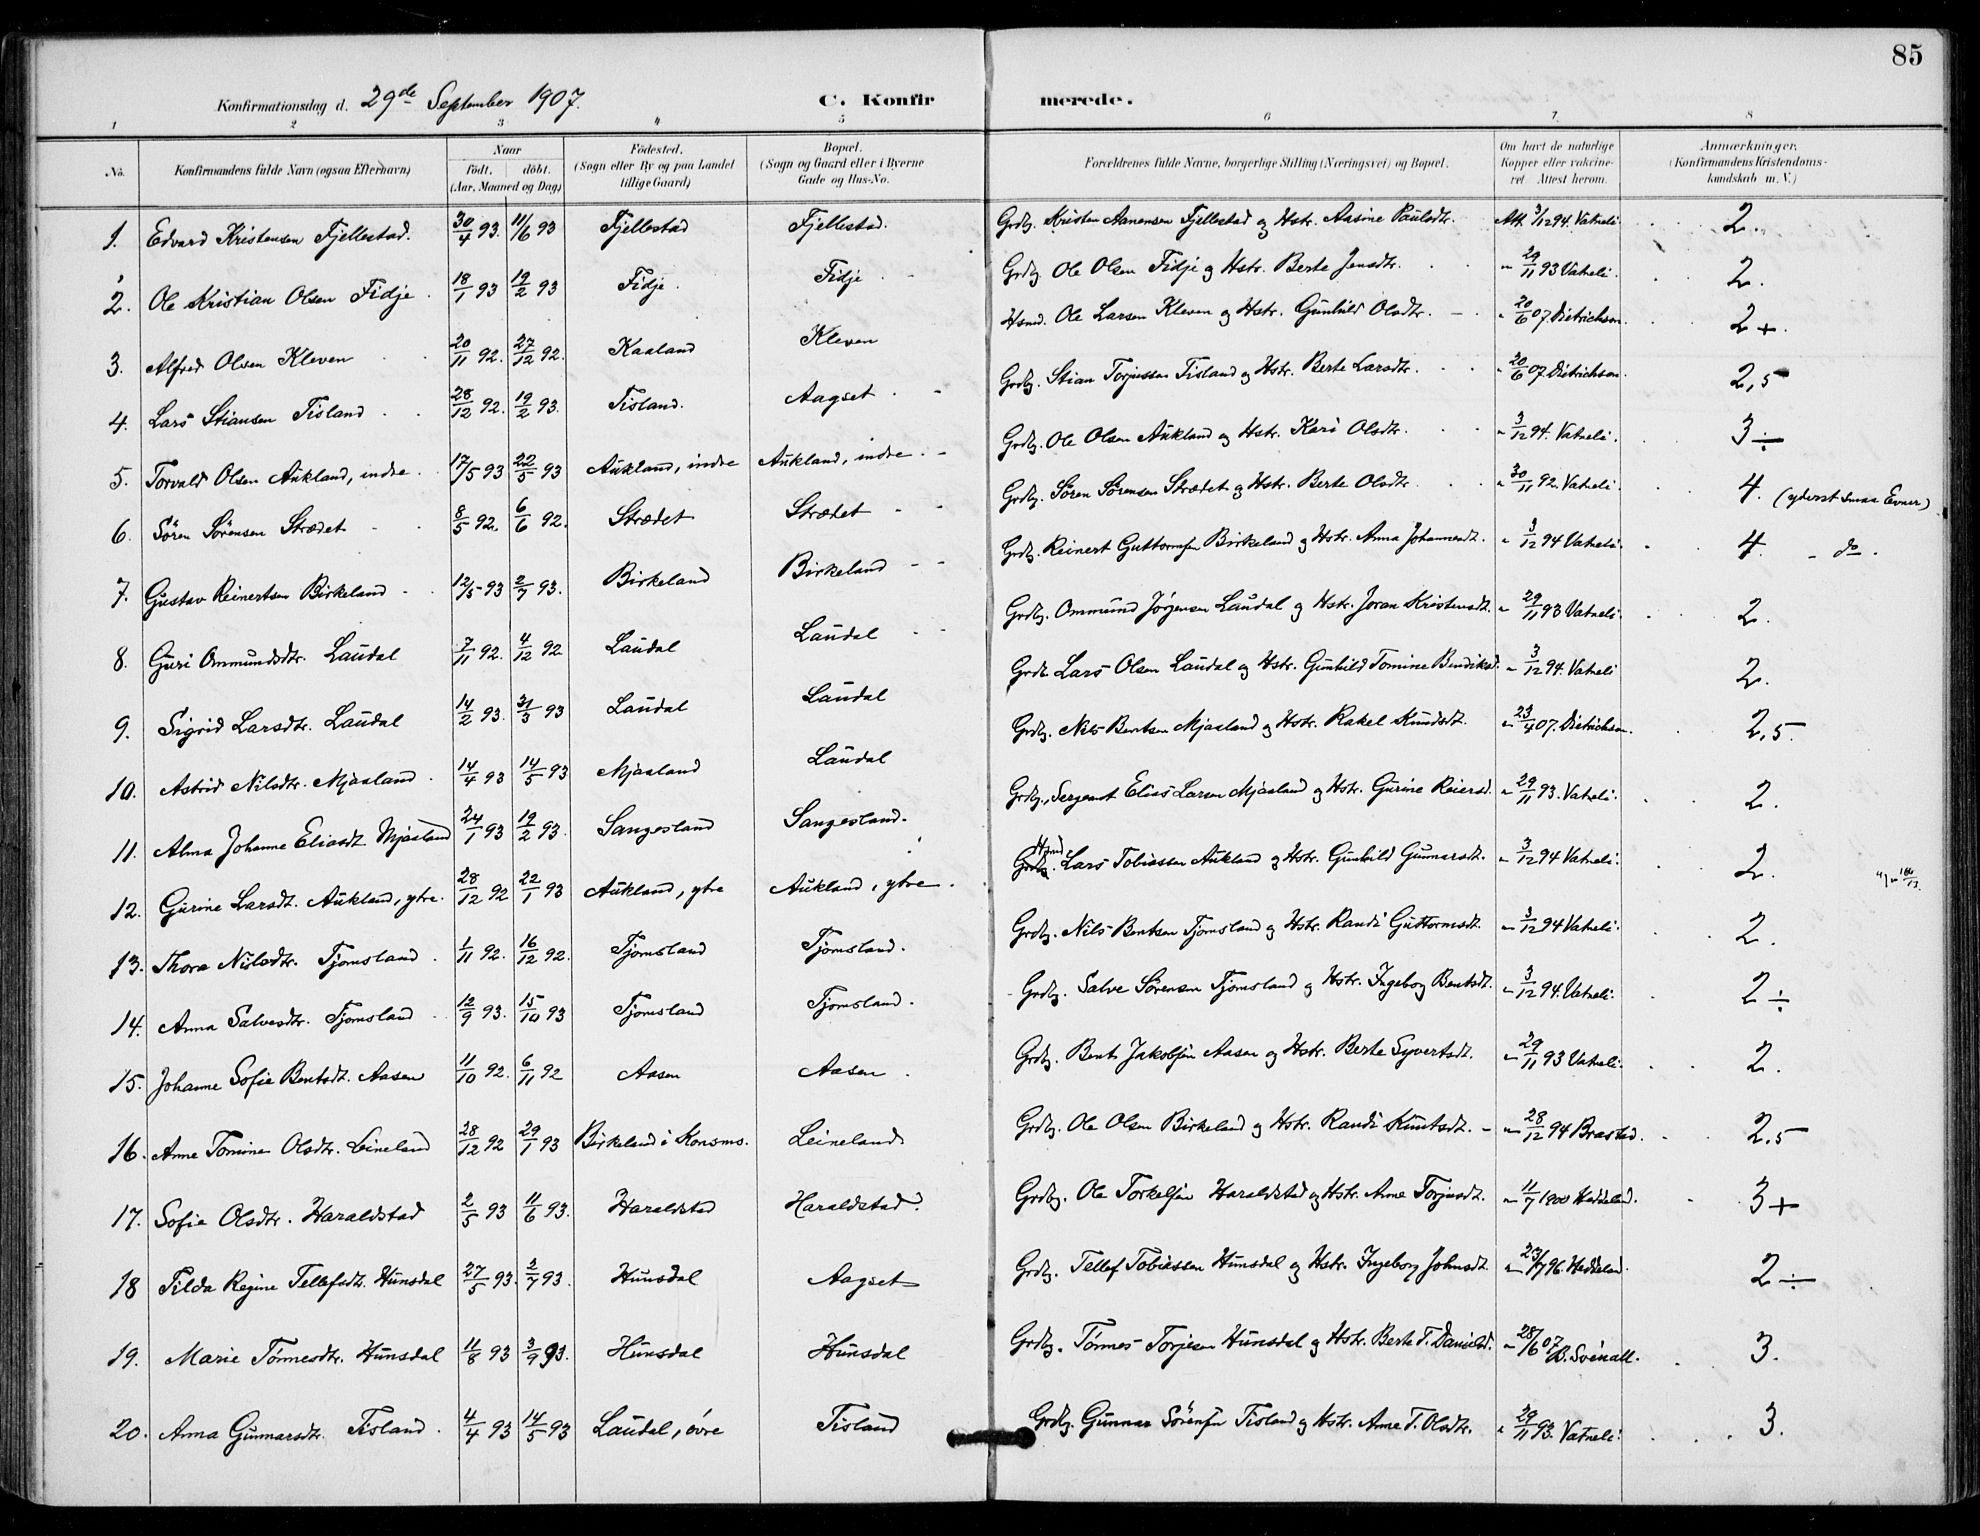 85
Konfirmationsdag d. 29de September 1907. C. Konfirmerede.
1 2 3 4 5 6 7. 8
No. Konfirmandens fulde Navn (ogsaa Efternavn) Naar födt. döbt. (Aar, Maaned og Dag) Födested. (Sogn eller By og paa Landet tillige Gaard) Bopæl. (Sogn og Gaard eller i Byerne Gade og Hus-No. Forældrenes fulde Navne, borgerlige Stilling (Næringsvei) og Bopæl. Om havt de naturlige Kopper eller vakcineret Attest herom. Anmærkninger. (Konfirmandens Kristendomskundskab m. V.)
1. Edvard Kristensen Fjellestad. 30/4 93. 11/6 93 Fjellestad Fjellestad. Grdbg. Kristen Aanensen Fjellestad og Hstr. Aasine Paulsdtr. Att. 3/12 94. Vatneli 2.
2. Ole Kristian Olsen Fidje 18/1 93 19/2 93 Fidje. Fidje Grdbg. Ole Olsen Fidje og Hstr. Berte Jensdtr. " 29/11 93 Vatneli. 2.
3. Alfred Olsen Kleven 20/11 92. 27/12 92. Kaaland Kleven Hsmd. Ole Larsen Kleven og Hstr. Gunhild Olsdtr. " 20/6 07. Dietrichson. 2+.
4. Lars Stiansen Tisland 28/12 92. 19/2 93. Tisland. Aagset Grdbg. Stian Torjussen Tisland og Hstr. Berte Larsdtr. " 20/6 07. Dietrichson. 2,5
5. Torvald Olsen Aukland, indre 17/5 93 22/5 93 Aukland, indre Aukland, indre Grdbg. Ole Olsen Aukland og Hstr. Kari Olsdtr. " 3/12 94. Vatneli. 3÷
6. Sören Sörensen Strædet 8/5 92. 6/6 92. Strædet Strædet Grdbg. Sören Sörensen Strædet og Hstr. Berte Olsdtr. " 30/11 92. Vatneli. 4. (yderst smaa Evner)
7. Gustav Reinertsen Birkeland 12/5 93 2/7 93. Birkeland Birkeland Grdbg. Reinert Guttormsen Birkeland og Hstr. Anna Johannesdt. " 3/12 94 Vatneli. 4. - do.
8. Guri Ommundsdtr. Laudal 7/11 92. 4/12 92 Laudal Laudal Grdbg. Ommund Jörgensen Laudal og Hstr. Joran Kristensdt. " 29/11 93 Vatneli. 2.
9. Sigrid Larsdtr. Laudal 14/2 93. 31/3 93 Laudal Laudal Grdb. Lars Olsen Laudal og Hstr. Gunhild Tomine Bendiksd. " 3/12 94. Vatneli 2.
10. Astrid Nilsdtr. Mjaaland 14/4 93 14/5 93 Mjaaland Laudal Grdbg. Nils Bentsen Mjaaland og Hstr. Rakel Knudsdt. " 23/4 07. Dietrichson. 2,5.
11. Alma Johanne Eliasdt. Mjaaland 24/1 93 19/2 93. Sangesland Sangesland. Grdbg., Sergeant Elias Larsen Mjaaland og Hstr. Gurine Reiersd. " 29/11 93. Vatneli. 2.
12. Gurine Larsdt. Aukland, ytre. 28/12 92 22/1 93 Aukland, ytre Aukland, ytre. Hsmd. Lars Tobiassen Aukland og Hstr. Gunhild Gunnarsdt. " 3/12 94 Vatneli. 2.
13. Thora Nilsdtr. Tjomsland 1/11 92. 16/12 92. Tjomsland Tjomsland. Grdbg. Nils Bentsen Tjomsland og Hstr. Randi Guttormsdt. " 3/12 94 Vatneli. 2.
14. Anna Salvesdtr. Tjomsland 12/9 93. 15/10 93 Tjomsland Tjomsland. Grdbg. Salve Sörensen Tjomsland og Hstr. Ingeborg Bentsdt. " 3/12 94. Vatneli. 2÷
15. Johanne Sofie Bentsdt. Aasen 11/10 92. 6/11 92 Aasen Aasen. Grdbg. Bent Jakobsen Aasen og Hstr. Berte Syvertsdt. " 29/11 93 Vatneli. 2.
16. Anne Tomine Olsdtr. Leineland 28/12 92 29/1 93 Birkeland i Konsms. Leineland Grdbg. Ole Olsen Birkeland og Hstr. Randi Knutsdt. - " 28/12 94 Brasted. 2,5
17. Sofie Olsdtr. Haraldstad 2/5 93 11/6 93. Haraldstad Haraldstad. Grdbg. Ole Torkelsen Haraldstad og Hstr. Anne Torjusdt. " 11/7 1900 Heddeland. 3+
18 Tilda Regine Tellefsdt. Hunsdal 27/5 93. 2/7 93. Hunsdal Aagset Grdbg. Tellef Tobiassen Hunsdal og Hstr. Ingeborg Johnsdt. " 23/7 96. Heddeland. 2÷
19. Marie Tönnesdtr. Hunsdal 11/8 93 3/9 93. Hunsdal Hunsdal Grdbg. Tönnes Torjesen Hunsdal og Hstr. Berte T. Danielsd. " 28/6 07 B. Svenall. 3.
20. Anna Gunnarsdtr. Tisland. 4/4 93 14/5 93 Laudal, övre Tisland Grdbg. Gunnar Sörensen Tisland og Hstr. Anne T. Olsdtr. " 29/11 93. Vatneli. 3.